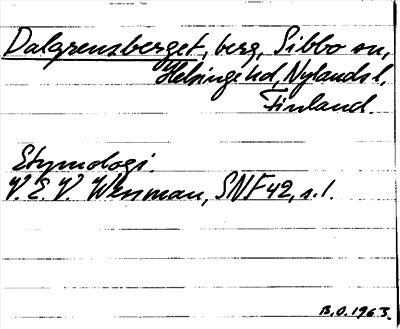 Dalgrensberget, berg, Sibbo sn,
Helsinge hd, Nylands l.
Finland.
Etymologi.
V. E. V. Wessman, SNF 42, s. 1.
B.O. 1963.